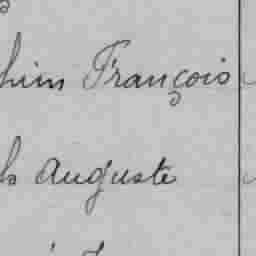 hin François
h Auguste